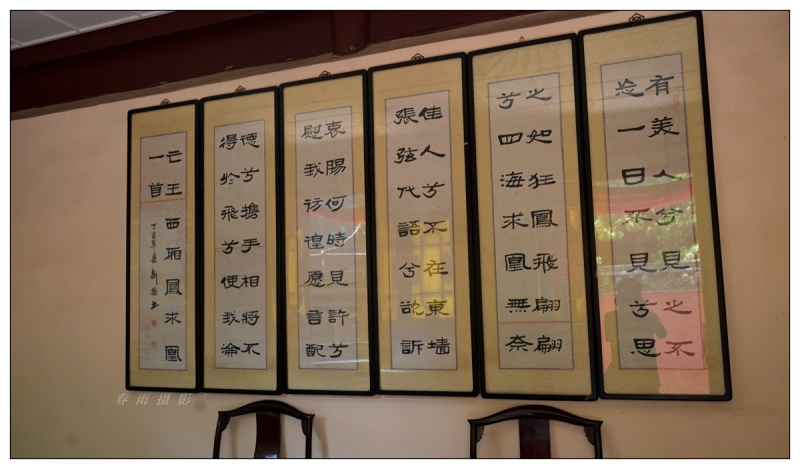 有美人兮見之不
忘一日不見兮思
之如狂鳳飛翩翩
兮四海求凰無奈
佳人兮不在東墙
張弦代語兮欲訴
衷賜何時見許兮
慰我彷徨愿言配
德兮攜手相將不
得於飛兮使我淪
亡王西厢鳳求凰
一首
春雨摄影